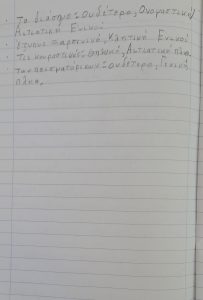 · Το διάσημο: Ουδέτερο, Ονομαστική/
Αιτιατική Ενικού
· έντυπος: Αρσενικό, Κλητική Ενικού
· Τις κουραστικές: Θηλυκό, Αιτιατική Πληθ.
· των πεισματάρικων: ουδέτερο, Γενική
Πληθ.